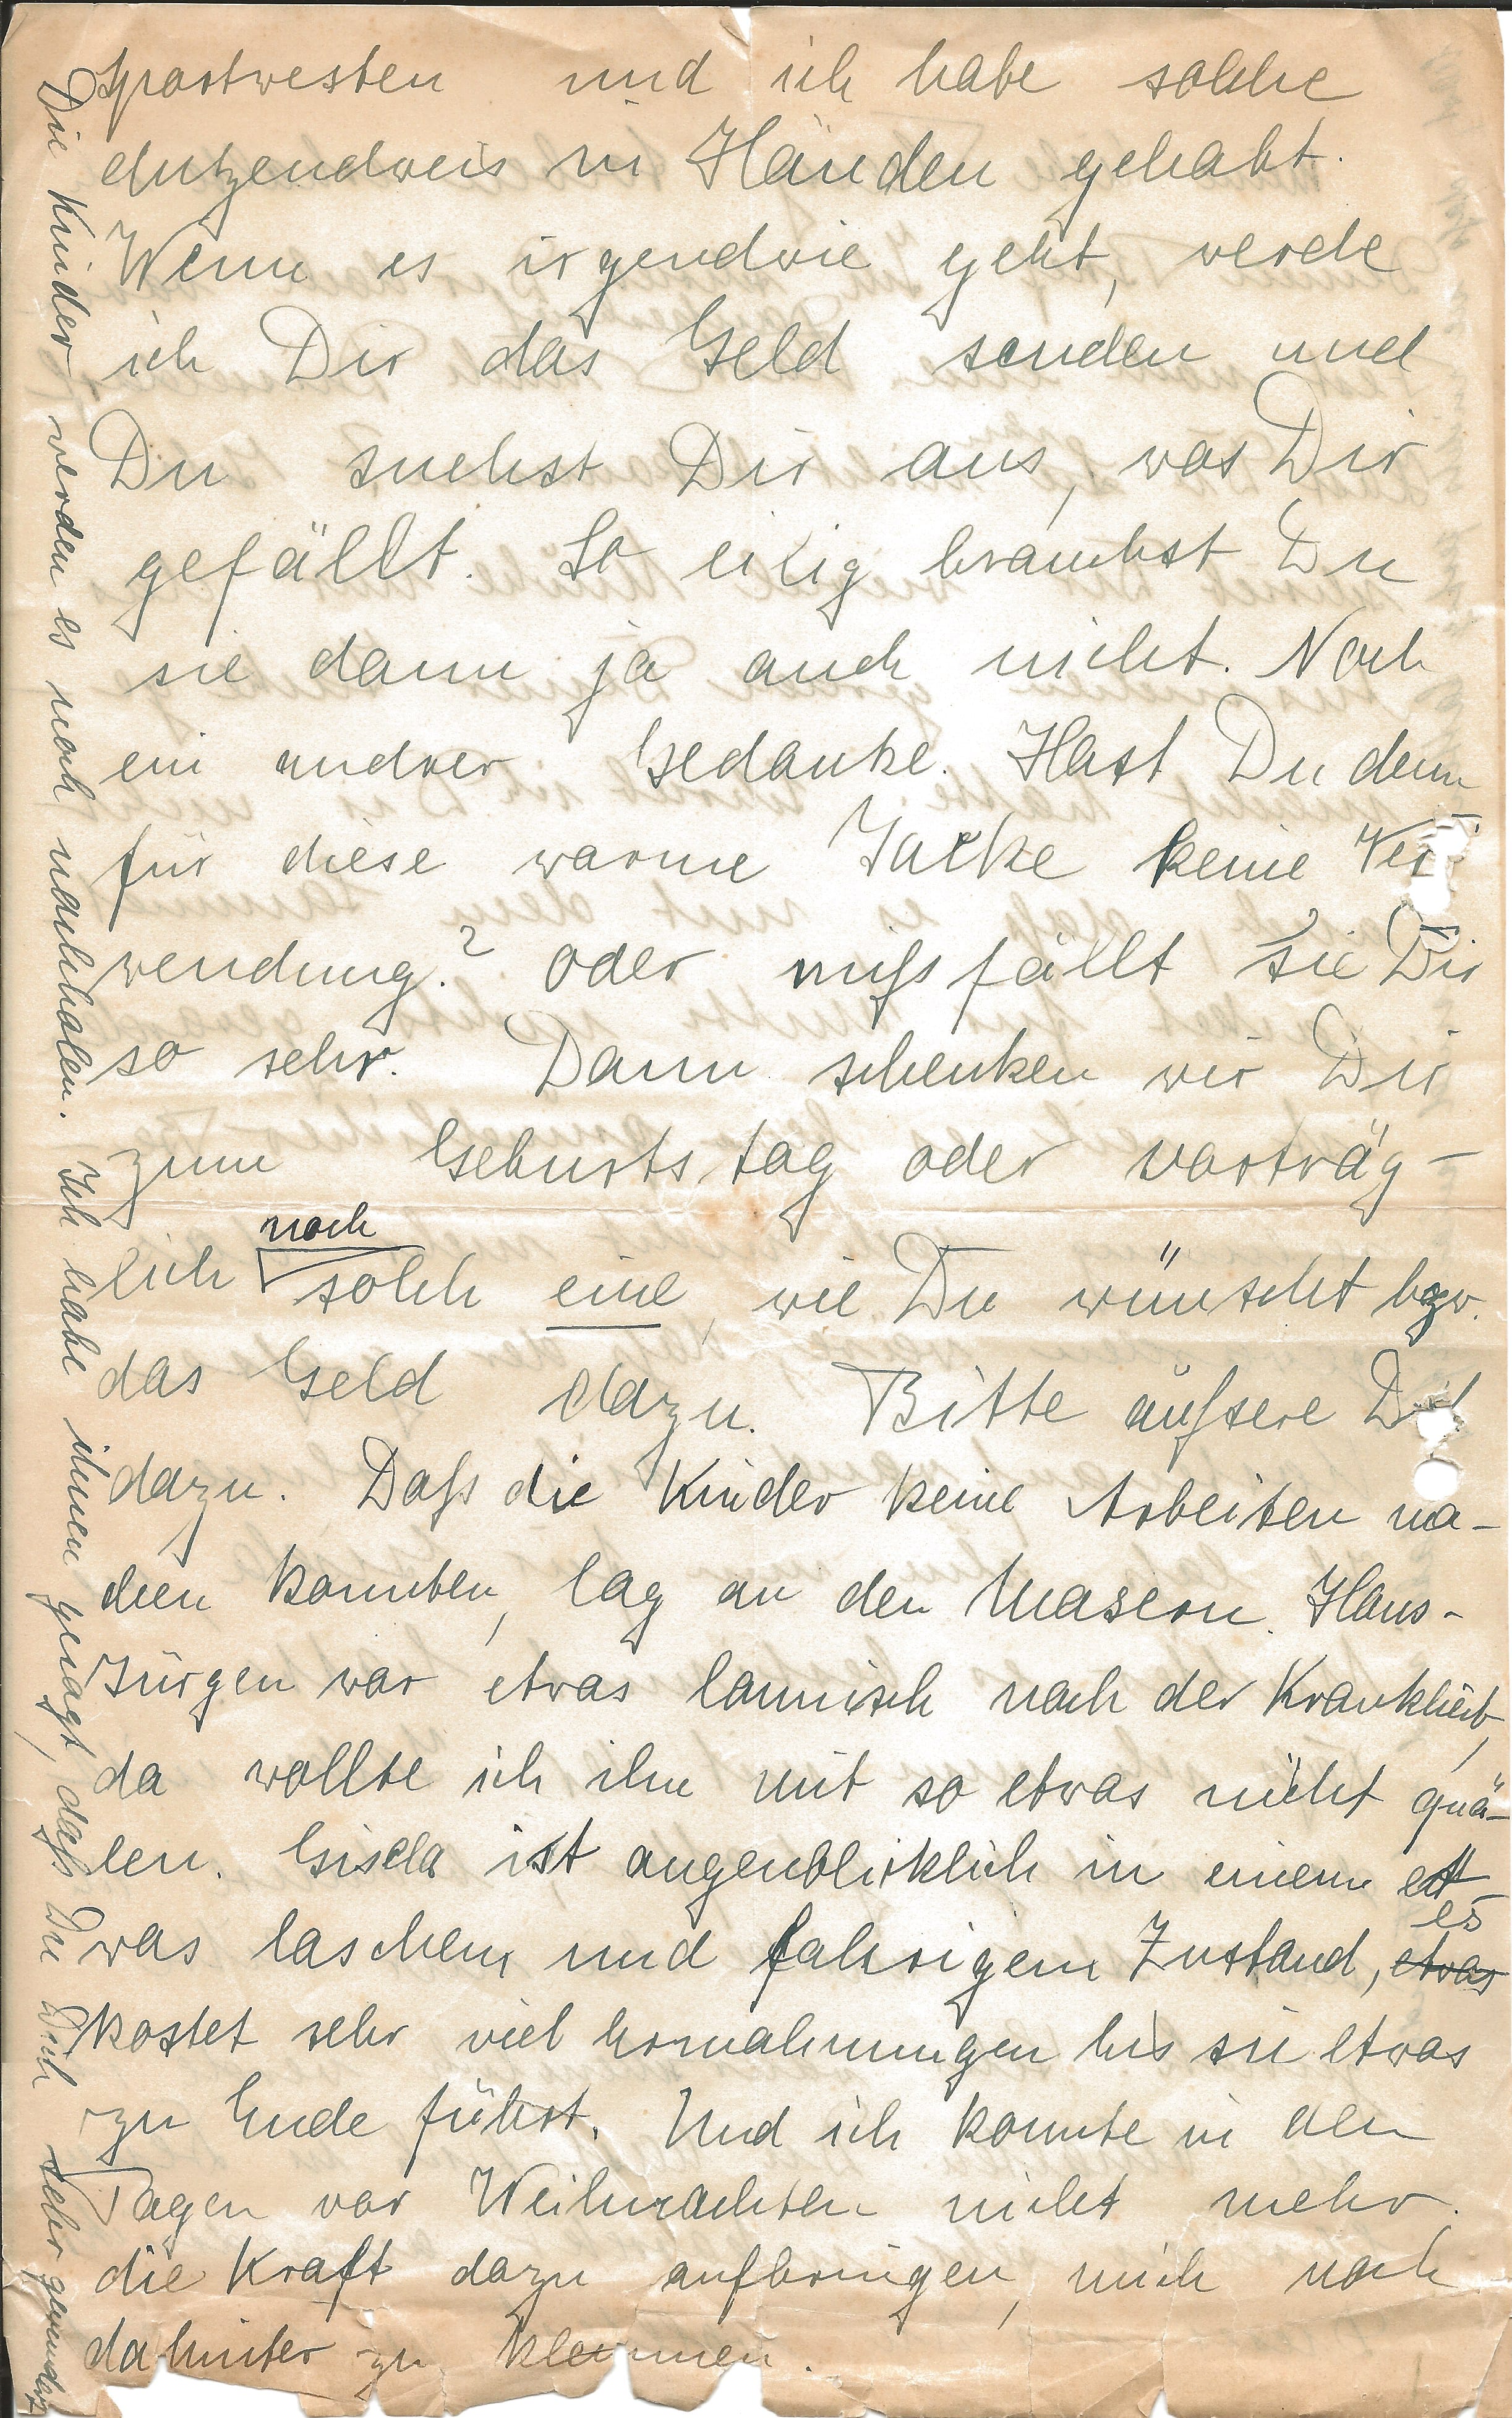 Sportwesten und ich habe solche
dutzendweis in Händen gehabt.
Wenn es irgendwie geht, werde
ich Dir das Geld senden und
Du suchst Dir aus, was Dir
gefällt. So eilig brauchst Du
sie dann ja auch nicht. Noch
ein andrer Gedanke. Hast Du denn
für diese warme Jacke keine Ver-
wendung? oder mißfällt sie Dir
so sehr. Dann schenken wir Dir
zum Geburtstag oder vorträg-
lich noch solch eine, wie Du wünscht bzw.
das Geld dazu. Bitte äußere Dich
dazu. Daß die Kinder keine Arbeiten ma-
chen konnten, lag an den Masern. Hans-
Jürgen war etwas launisch nach der Krankheit,
da wollte ich ihn mit so etwas nicht quä-
len. Gisela ist augenblicklich in einem et-
was laschem und fahrigem Zustand, es etwas
kostet sehr viel Ermahnungen bis sie etwas
zu Ende führt. Und ich konnte in den
Tagen vor Weihnachten nicht mehr
die Kraft dazu aufbringen, mich noch
dahinter zu klemmen.
Die Kinder werden es noch nachholen. Ich habe ihnen gesagt, daß Du Dich sehr